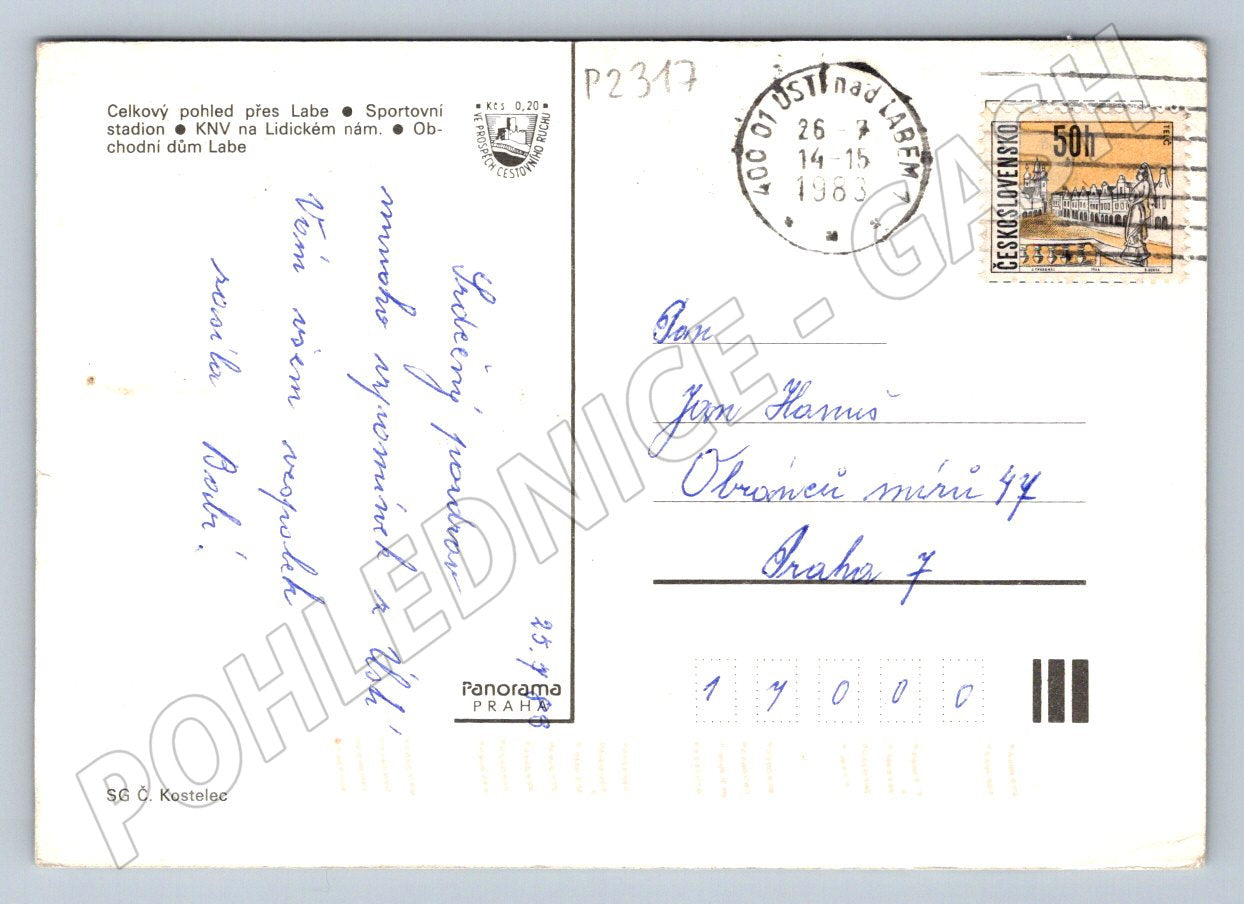 Celkový pohled přes Labe ● Sportovní
stadion ● KNV na Lidickém nám. ● Ob-
chodní dům Labe
Kčs 0,20
VE PROSPĚCH CESTOVNÍHO RUCHU
P2317
400 01 ÚSTÍ nad LABEM 7
26 -7
14-15
1983
ČESKOSLOVENSKO
50h
TELČ
25. 7. 83
Srdečný pozdrav
mnoho vzpomínek z Ústí
Vám všem vespolek
posílá Babi.
Pan
Jan Hanuš
Obránců míru 47
Praha 7
17000
Panorama
PRAHA
SG Č. Kostelec
POHLEDNICE - GASH